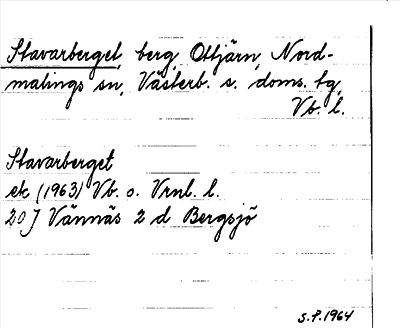 Stavarberget, berg, Ottjärn, Nord-
malings sn, Västerb. s. doms. tg,
Vb. l.
Stavarberget
ek (1963) Vb. o. Vrnl. l.
20 J Vännäs 2 d Bergsjö
S.P. 1964